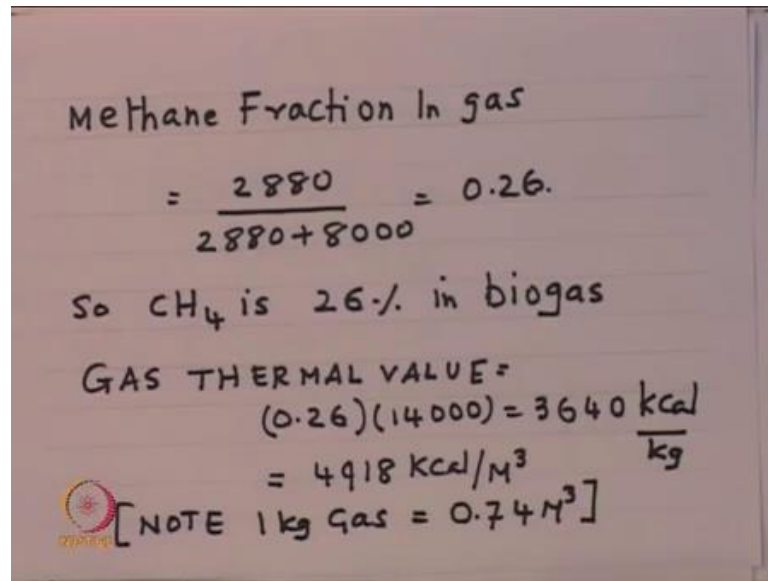 Methane Fraction In gas
= 2880 / 2880+8000 = 0.26.
So CH₄ is 26% in biogas
GAS THERMAL VALUE =
(0.26)(14000) = 3640 kcal/kg
= 4918 Kcal/M³
[NOTE 1 kg Gas = 0.74 M³]